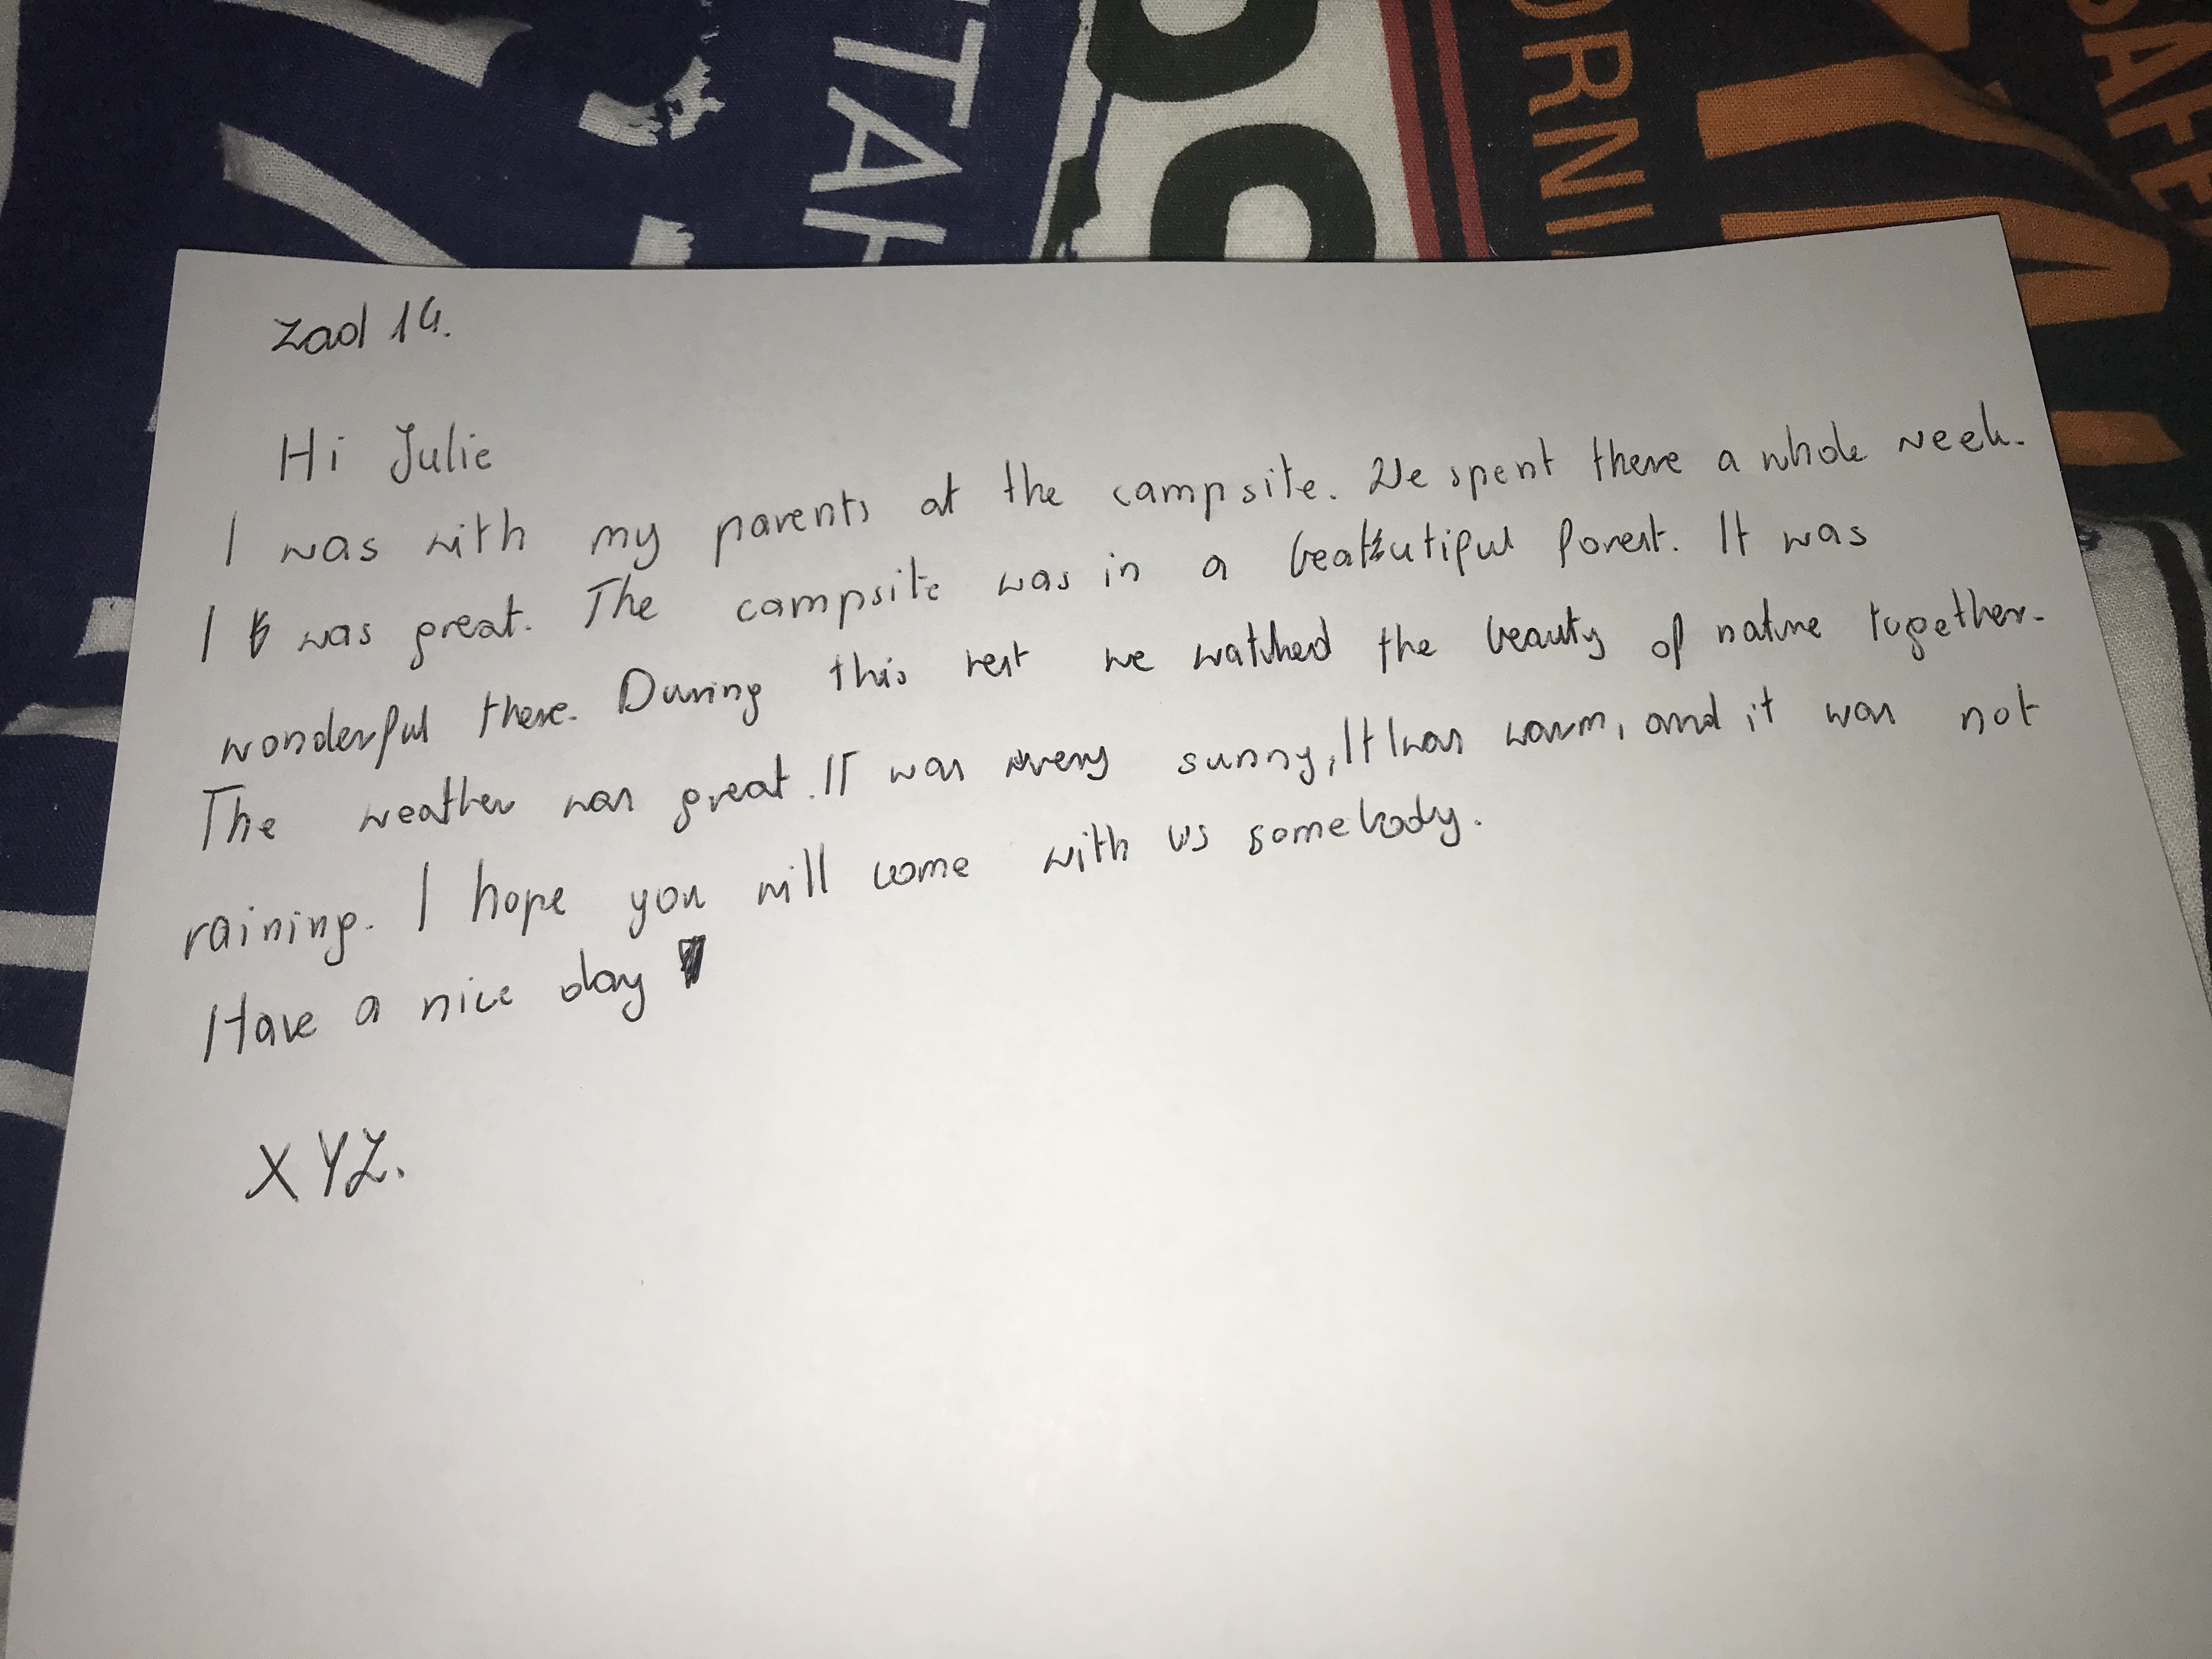 TAH
ORNIA
SAFE
Zad 14.
Hi Julie
I was with my parents at the campsite. We spent there a whole week.
It was great. The campsite was in a beautiful forest. It was
wonderful there. During this rest we watched the beauty of nature together.
The weather was great. IT was very sunny, It was warm, and it was not
raining. I hope you will come with us somebody.
Have a nice day
XYZ.